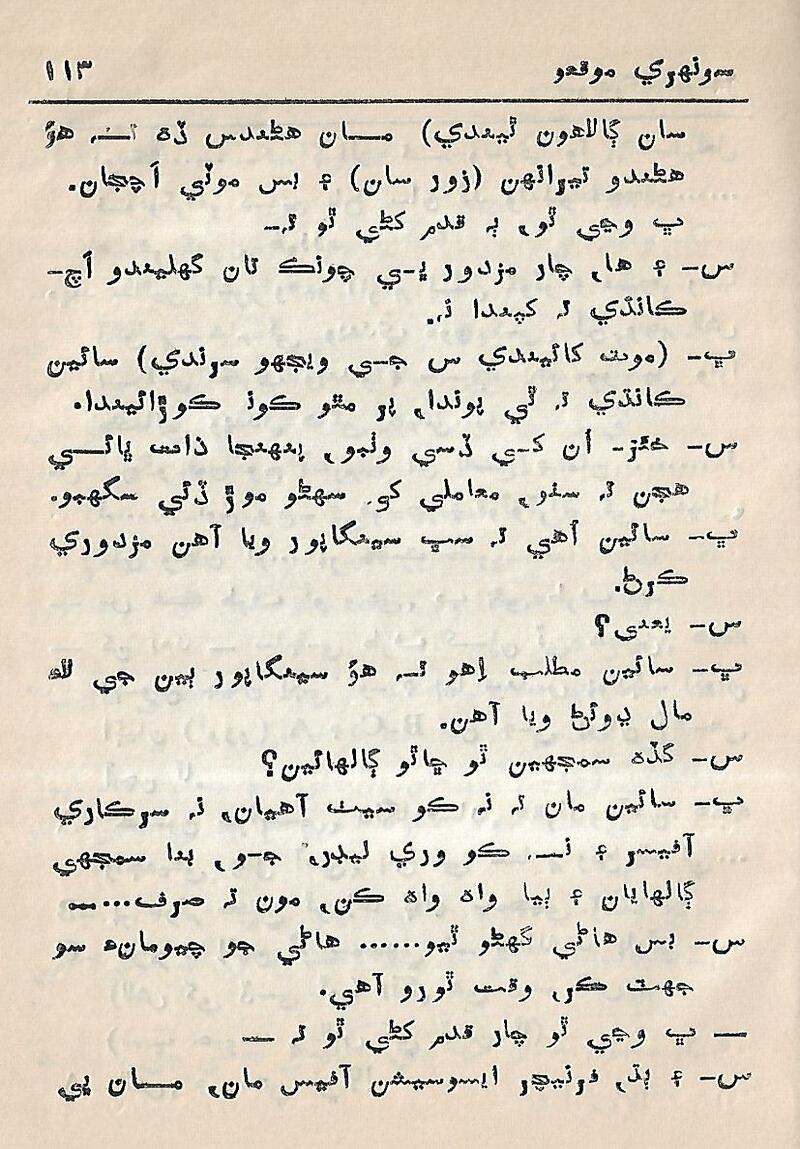 سونهري موقعو ۱۱۳
سان ڳالاهون ٿيندي) مــان هڻندس ڏه تــہ هؤ
هڻندو تيرانهن (زور سان) ۽ بس موٽي اَچجان.
ب وڃي ٿو، ٻہ قدم کڻي ٿو تہ—
س— ۽ ها، چار مزدور پ-ي چونڪ تان گهليندو اَچ-
ڪانڌي تہ کپندا نہ.
ب— (موٽ کائيندي س ج-ي ويجهو سرندي) سائين
ڪانڌي تہ ٿي پوندا، پر مٿو ڪونہ ڪوڙائيندا.
س— اُن ک-ي ڏسي وٺبو، پنهنجا ذات ڀائــي
هجن تہ سٺو، معاملي کي سهڻو موڙ ڏئي سگهبو.
ب— سائين اُهي تہ سڀ سينگاپور ويا آهن مزدوري
ڪرڻ.
س— يعني؟
ب— سائين مطلب اِهو تــہ هؤ سينگاپور ٻين جي لاءِ
مال ڍوئڻ ويا آهن.
س— گڏه سمجهين ٿو ڇاٿو ڳالهائين؟
ب— سائين مان تہ نہ ڪو سيٺ آهيان، نہ سرڪاري
آفيسر ۽ نــہ ڪو وري ليڊر، ج-و، بنا سمجهي
ڳالهايان ۽ ٻيا واه واه ڪن، مون تہ صرف...—
س— بس هاڻي گهڻو ٿيو...... هاڻي جو چيومانءِ سو
جهٽ ڪر، وقت ٿورو آهي.
— ب وڃي ٿو چار قدم کڻي ٿو تہ —
س— ۽ ٻڌ، فرنيچر ايسوسيشن آفيس مان، مــان پي